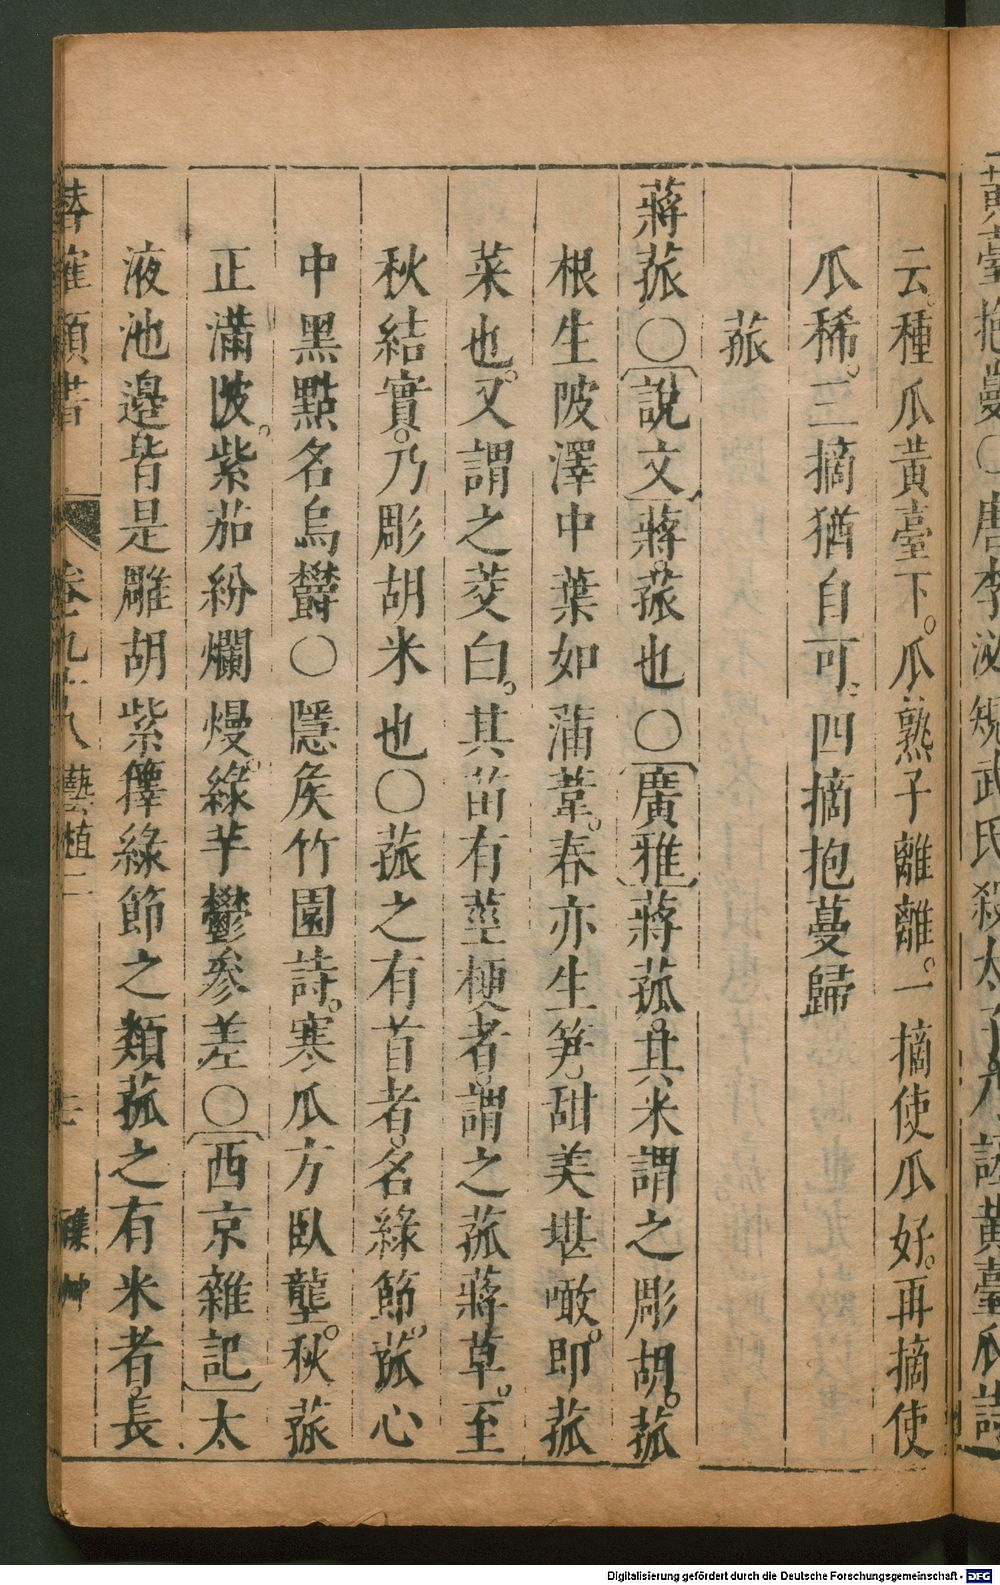 黃臺抱蔓〇唐李泌規武氏殺太子黃臺瓜詩
云種瓜黃臺下。瓜熟子離離。一摘使瓜好。再摘使
瓜稀。三摘猶自可。四摘抱蔓歸
菰
蔣菰〇〔說文〕蔣。菰也〇〔廣雅〕蔣菰。其米謂之彫胡。菰
根生陂澤中葉如蒲葦。春亦生笋甜美堪噉。即菰
菜也。又謂之茭白。其苗有莖梗者。謂之菰蔣草。至
秋結實。乃彫胡米也〇菰之有首者。名綠節。菰心
中黑點名烏鬱〇隱侯竹園詩。寒瓜方臥壟。秋菰
正滿陂。紫茄紛爛熳。綠芋鬱參差〇〔西京雜記〕太
液池邉皆是雕胡紫籜綠節之類菰之有米者。長
類書 卷九十八 藝植二
Digitalisierung gefördert durch die Deutsche Forschungsgemeinschaft - DFG